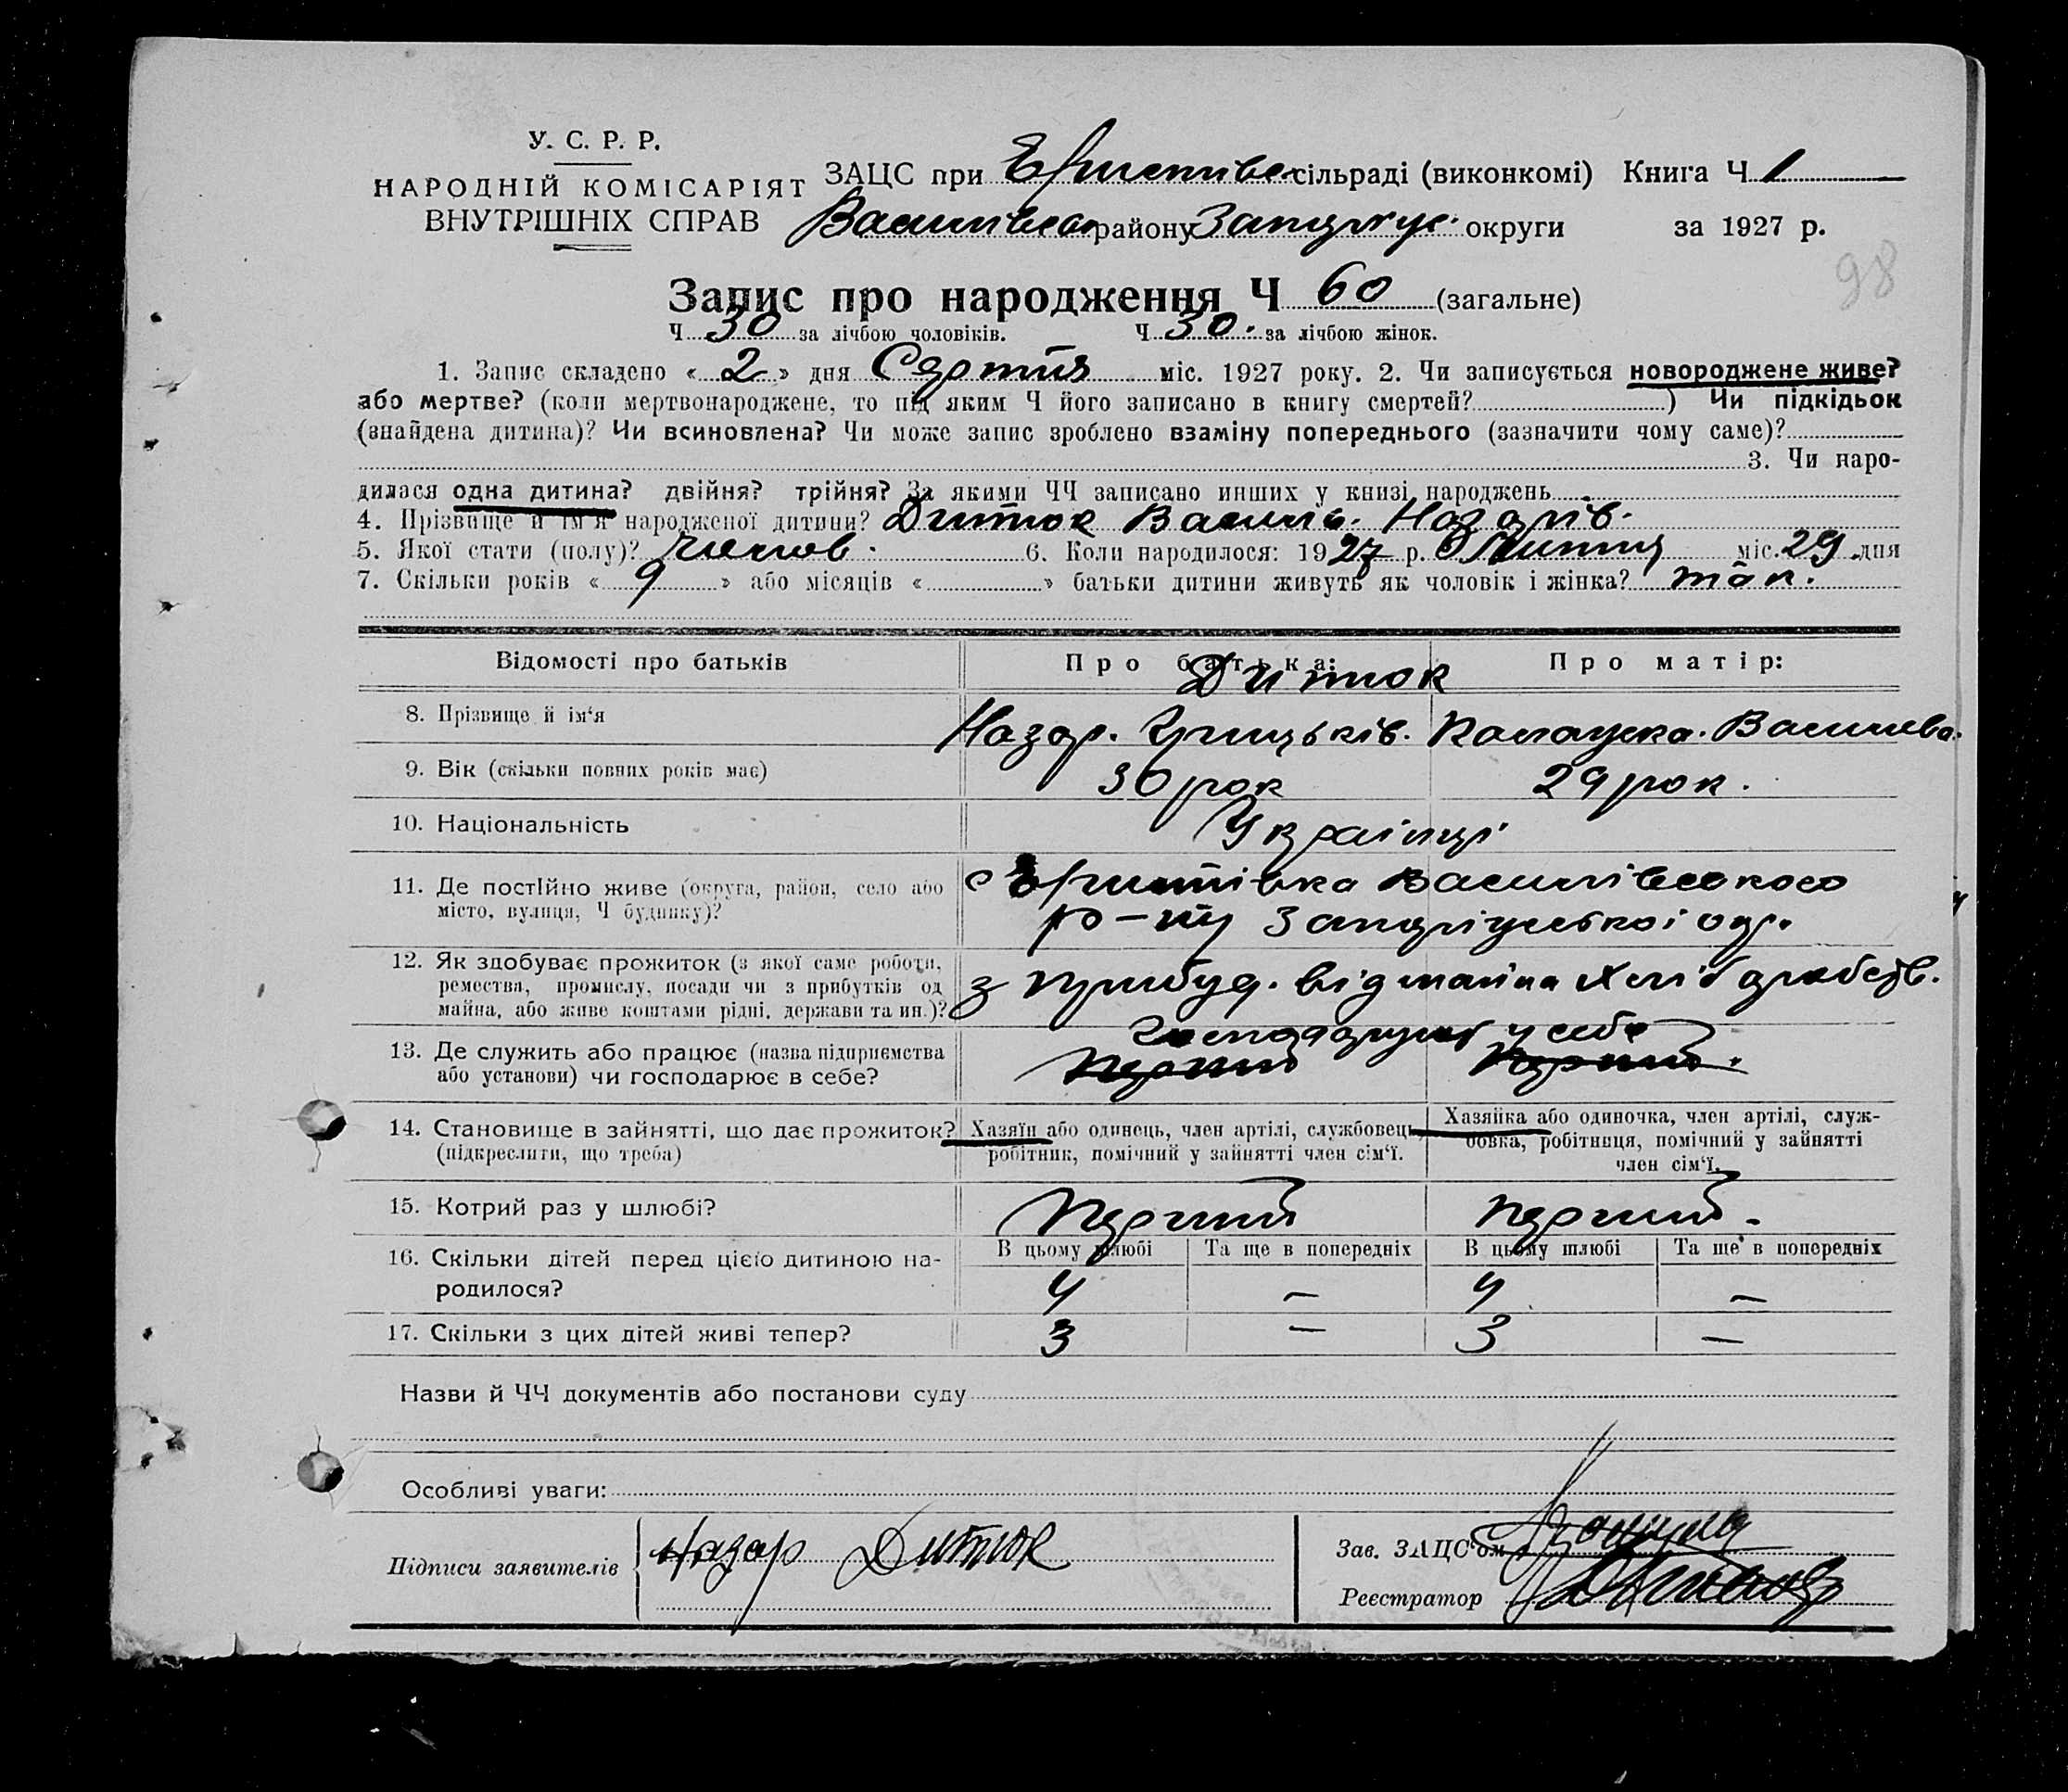 У. С. Р. Р.
НАРОДНІЙ КОМІСАРІЯТ
ВНУТРІШНІХ СПРАВ
ЗАЦС при сільраді (виконкомі) Книга Ч 1
району округи за 1927 р.
98
Запис про народження Ч 60 (загальне)
Ч 30 за лічбою чоловіків. Ч 30. за лічбою жінок.
1. Запис складено « 2 » дня Серпня міс. 1927 року. 2. Чи записується новороджене живе?
або мертве? (коли мертвонароджене, то під яким Ч його записано в книгу смертей? ) Чи підкідьок
(знайдена дитина)? Чи всиновлена? Чи може запис зроблено взаміну попереднього (зазначити чому саме)?
3. Чи наро-
дилася одна дитина? двійня? трійня? За якими ЧЧ записано инших у книзі народжень
4. Прізвище й ім'я народженої дитини? Дитюк Василь. Назарів.
5. Якої стати (полу)? 6. Коли народилося: 1927 р. Липця міс. 29 дня
7. Скільки років « 9 » або місяців « » батьки дитини живуть як чоловік і жінка? так.
Відомості про батьків Про батька: Про матір:
Дитюк
8. Прізвище й ім'я Назар. Грицьків. Васильева.
9. Вік (скільки повних років має) 30 рок 29 рок.
10. Національність Українці
11. Де постійно живе (округа, район, село або
місто, вулиця, Ч будинку)?
с Василівського
р-ну Запоріжської окр.
12. Як здобуває прожиток (з якої саме роботи,
ремества, промислу, посади чи з прибутків од
майна, або живе коштами рідні, держави та ин.)?
з прибут. від майна
13. Де служить або працює (назва підприємства
або установи) чи господарює в себе?
господарує у себе
Перший Перший.
14. Становище в зайнятті, що дає прожиток?
(підкреслити, що треба)
Хазяїн або одинець, член артілі, службовець,
робітник, помічний у зайнятті член сім'ї.
Хазяйка або одиночка, член артілі, служ-
бовка, робітниця, помічний у зайнятті
член сім'ї.
15. Котрий раз у шлюбі? Перший Перший.
16. Скільки дітей перед цією дитиною на-
родилося?
В цьому шлюбі Та ще в попередніх В цьому шлюбі Та ще в попередніх
4 — 4 —
17. Скільки з цих дітей живі тепер? 3 — 3 —
Назви й ЧЧ документів або постанови суду
Особливі уваги:
Підписи заявителів Назар Дитюк
Зав. ЗАЦС'ом
Реєстратор